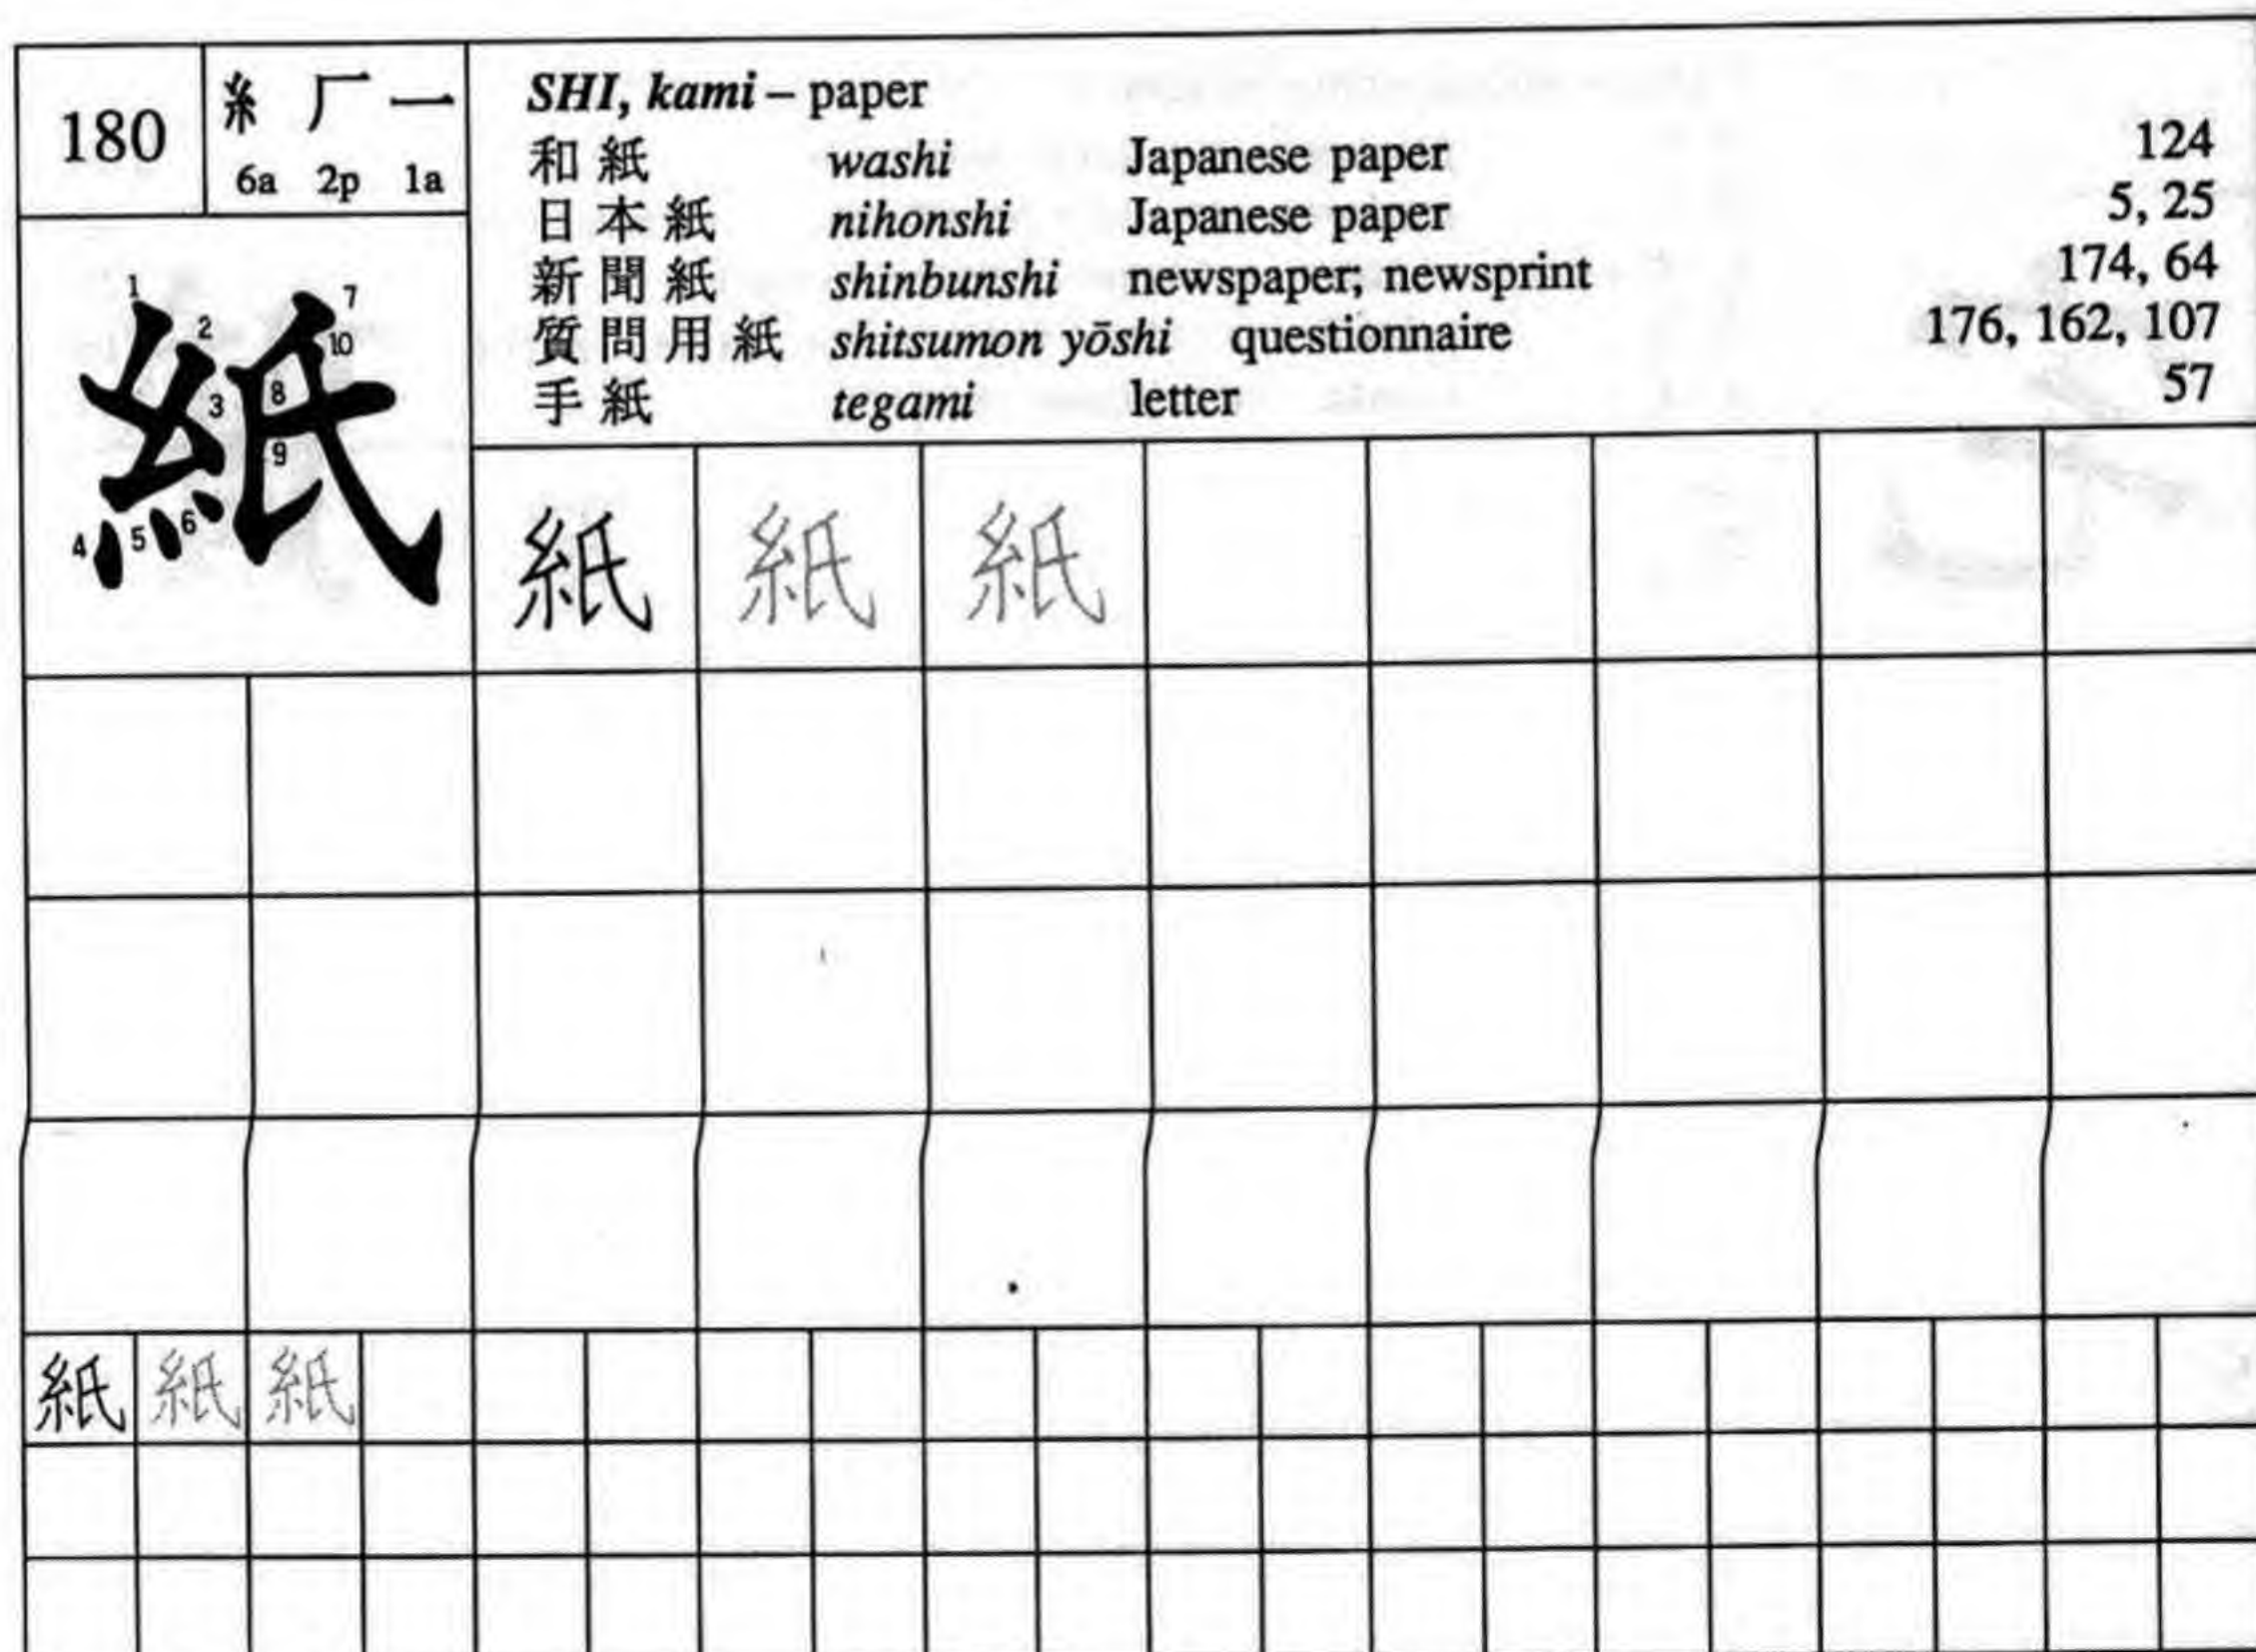 180
糹 厂 一
6a 2p 1a
SHI, kami – paper
和紙 washi Japanese paper 124
日本紙 nihonshi Japanese paper 5, 25
新聞紙 shinbunshi newspaper; newsprint 174, 64
質問用紙 shitsumon yōshi questionnaire 176, 162, 107
手紙 tegami letter 57
紙
1 2 3 4 5 6 7 8 9 10
紙 紙 紙
紙 紙 紙